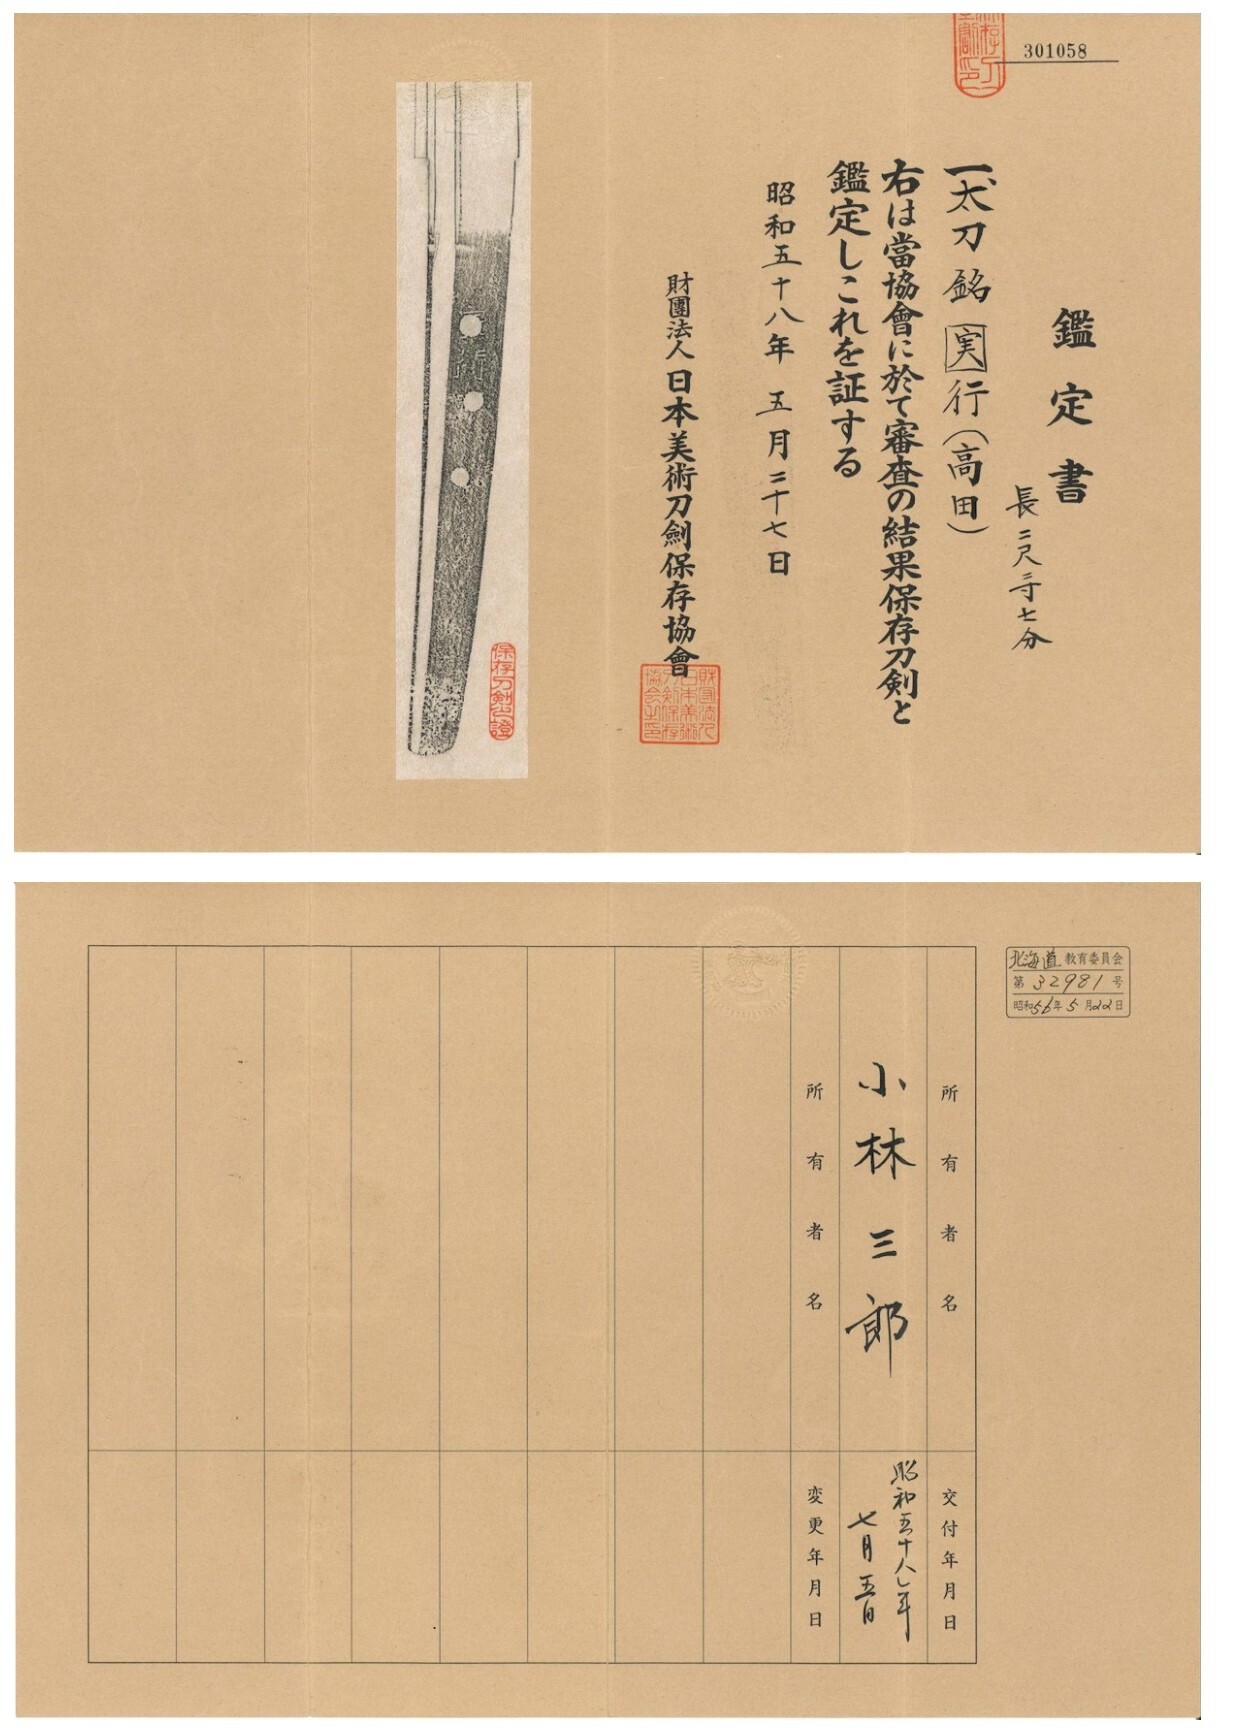 301058
鑑定書
長二尺三寸七分
一、太刀 銘 実行(高田)
右は當協會に於て審査の結果保存刀剣と
鑑定しこれを証する
昭和五十八年 五月二十七日
財團法人 日本美術刀劍保存協會
財団法人日本美術刀剣保存協会之印
保存刀剣之證
北海道教育委員会
第 32981 号
昭和56年5月22日
所有者名
交付年月日
小林三郎
昭和五十八年
七月五日
所有者名
変更年月日